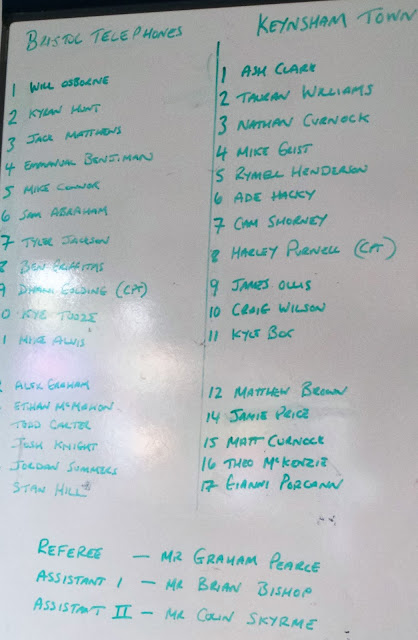 BRISTOL TELEPHONES
1 WILL OSBORNE
2 KYRAN HUNT
3 JACK MATTHEWS
4 EMMANUAL BENJIMAN
5 MIKE CONNOR
6 SAM ABRAHAM
7 TYLER JACKSON
8 BEN GRIFFITHS
9 GOLDING (CPT)
0 KYE TOOZE
1 MIKE ALVIS
ALEX GRAHAM
ETHAN McMAHON
TODD CARTER
JOSH KNIGHT
JORDAN SUMMERS
STAN HILL
KEYNSHAM TOWN
1 ASH CLARK
2 TAURAN WILLIAMS
3 NATHAN CURNOCK
4 MIKE GRIST
5 RYMELL HENDERSON
6 ADE HACKY
7 CAM SHORNEY
8 HARLEY PURNELL (CPT)
9 JAMES OLLIS
10 CRAIG WILSON
11 KYLE BOX
12 MATTHEW BROWN
14 JAMIE PRICE
15 MATT CURNOCK
16 THEO McKENZIE
17 GIANNI
REFEREE — MR GRAHAM PEARCE
ASSISTANT I — MR BRIAN BISHOP
ASSISTANT II — MR COLIN SKYRME